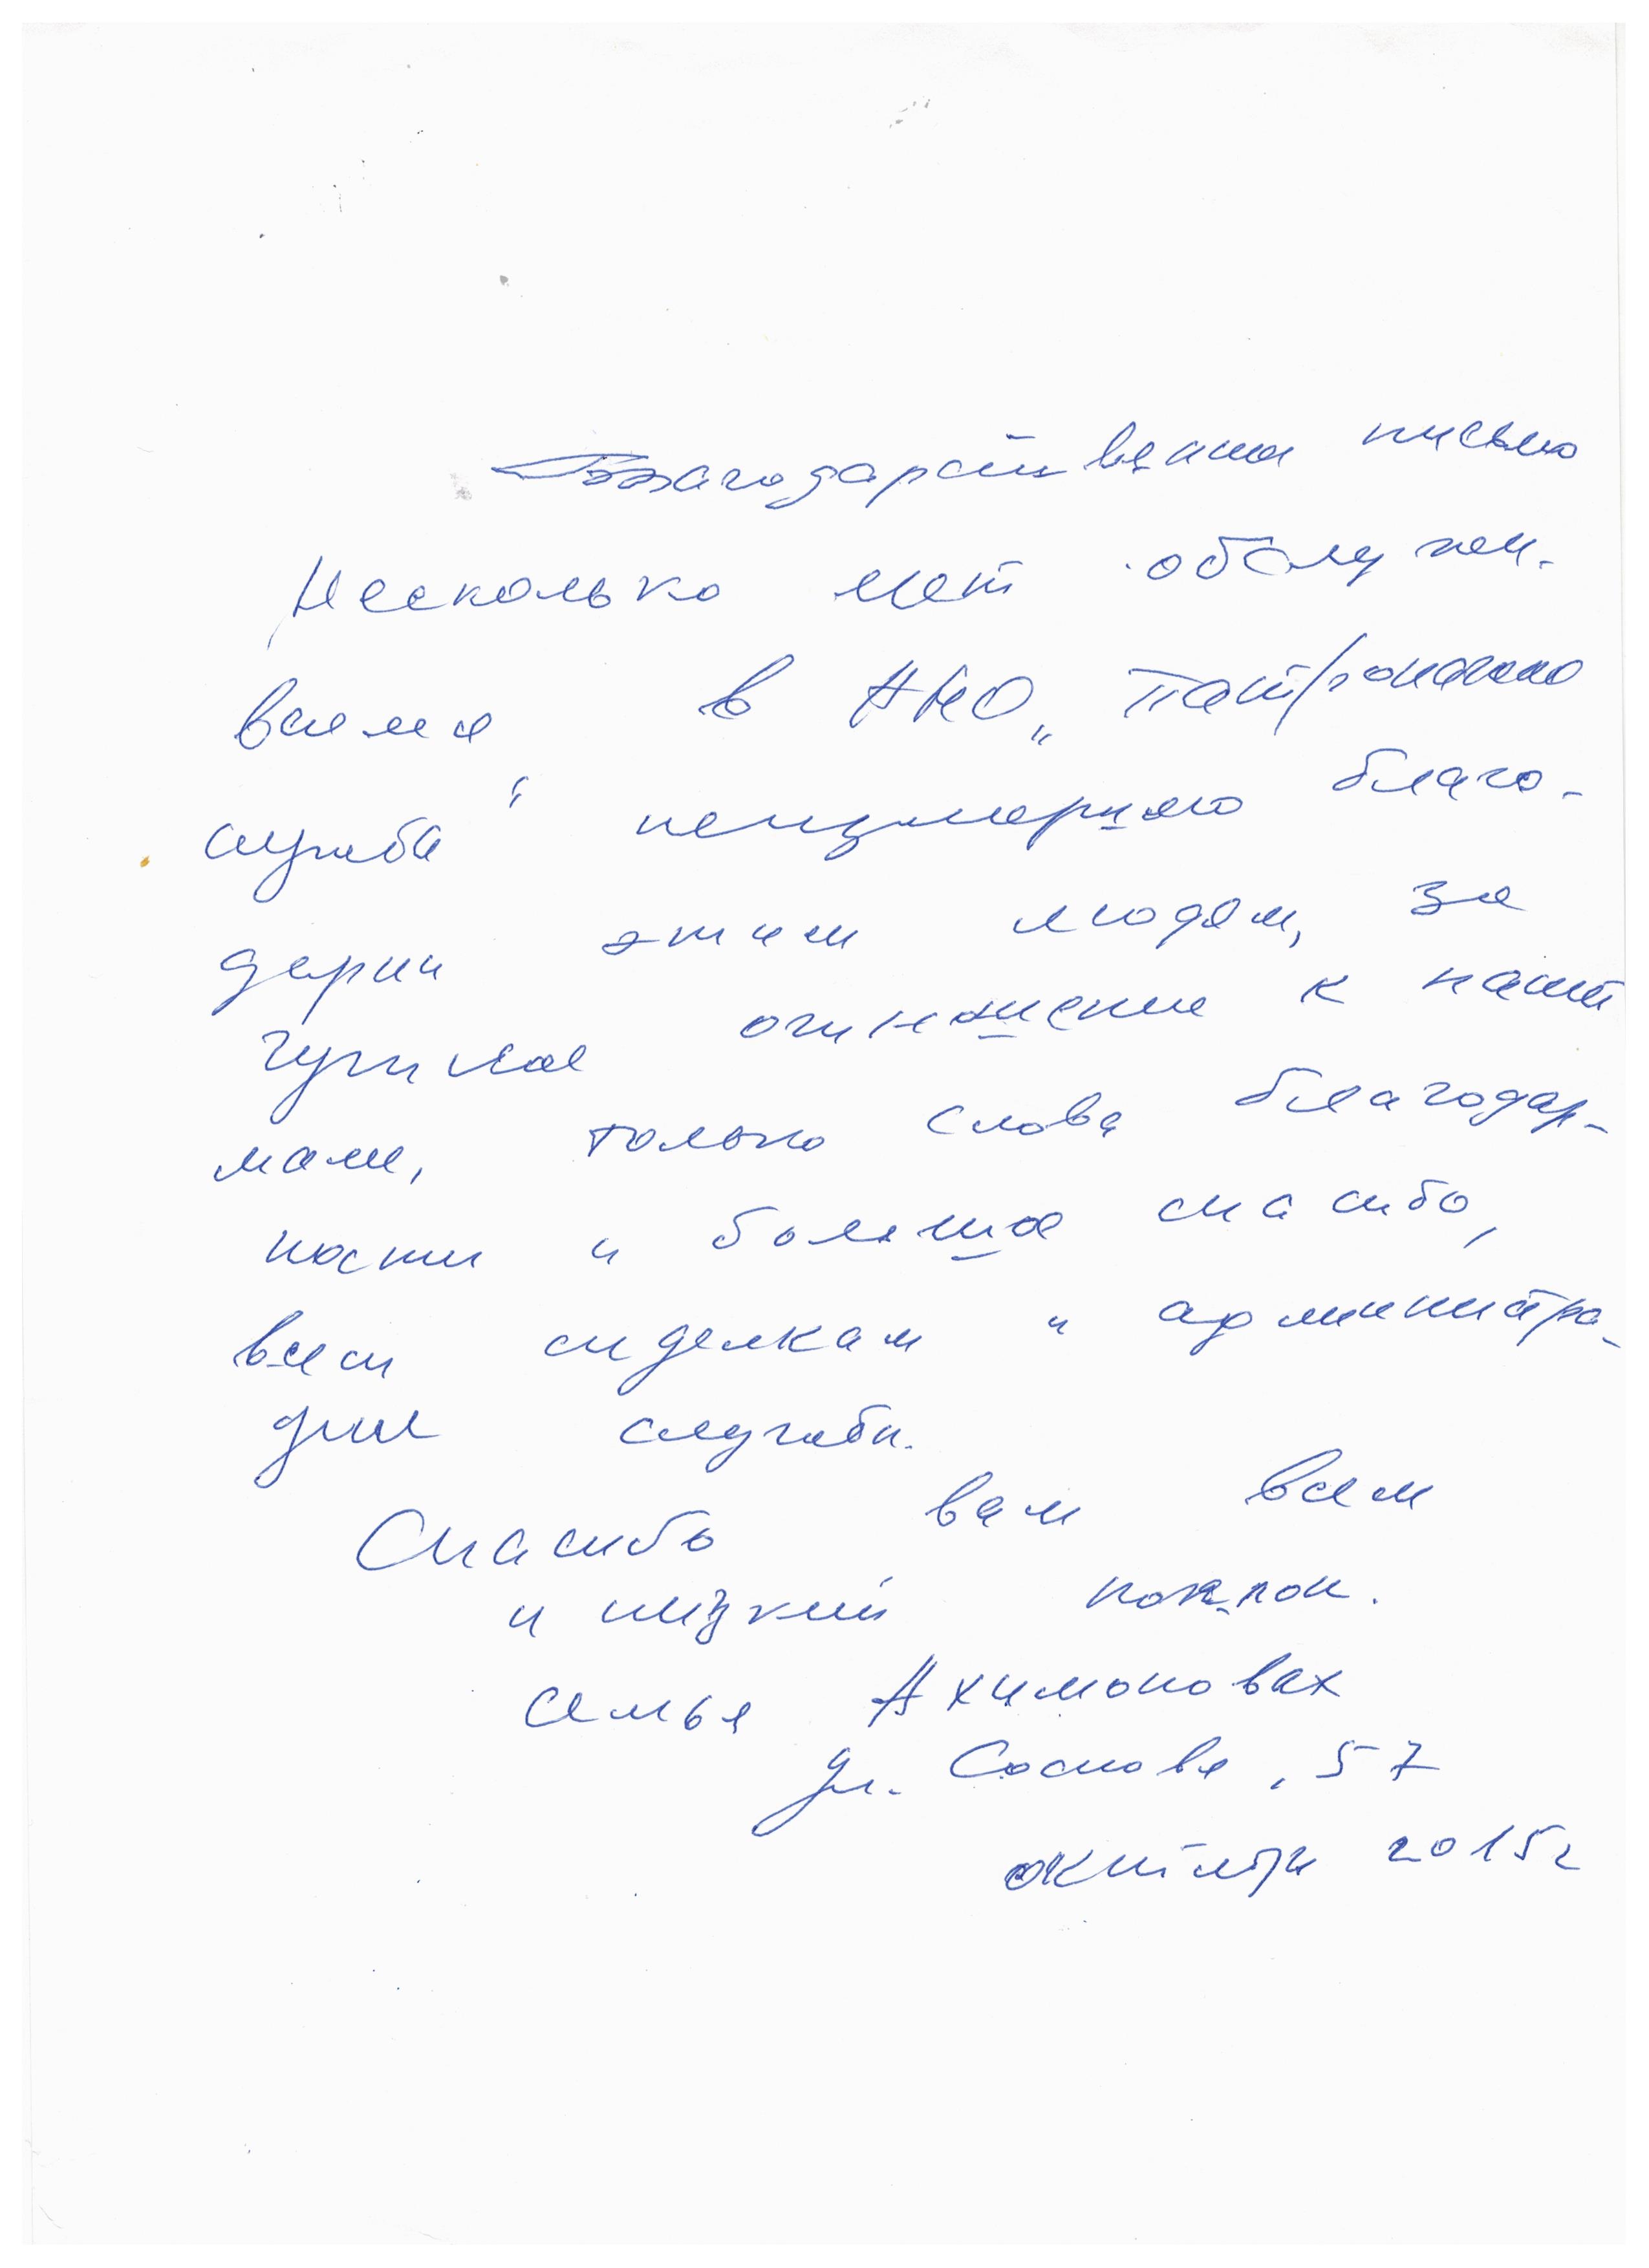 Благодарственное письмо
Несколько лет обслужи-
ваемся в АНО „Патронажная
служба" неизмеримо благо-
дарны этим людям, за
чуткое отношение к нашей
маме, только слова благодар-
ности и большое спасибо,
всем сиделкам и администра-
ции службы.
Спасибо вам всем
и низкий поклон.
Семья Ахимоновах
ул. Соснова, 57
октябрь 2015г